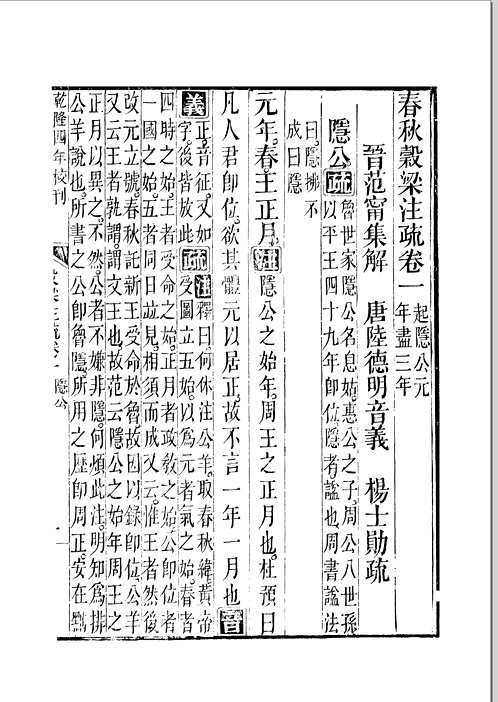 春秋穀梁注疏卷一起隱公元年盡三年
晉范甯集解　唐陸德明音義　楊士勛疏
隱公疏魯世家隱公名息姑惠公之子周公八世孫
以平王四十九年即位隱者謚也周書謚法
曰隱拂不
成曰隱
元年春王正月注隱公之始年周王之正月也杜預曰
凡人君即位欲其體元以居正故不言一年一月也音
義正音征又如
字後皆放此疏注釋曰何休注公羊取春秋緯黃帝
受圖立五始以爲元者氣之始春者
四時之始王者受命之始正月者政敎之始公卽位者
一國之始五者同日並見相須而成又云惟王者然後
改元立號春秋託新王受命於魯故因以録卽位公羊
又云王者孰謂謂文王也故范云隱公之始年周王之
正月以異之不然公者不嫌非隱何煩此注明知爲排
公羊說也所書之公卽魯隱所用之歷卽周正安在黜
乾隆四年校刊
隱公
一